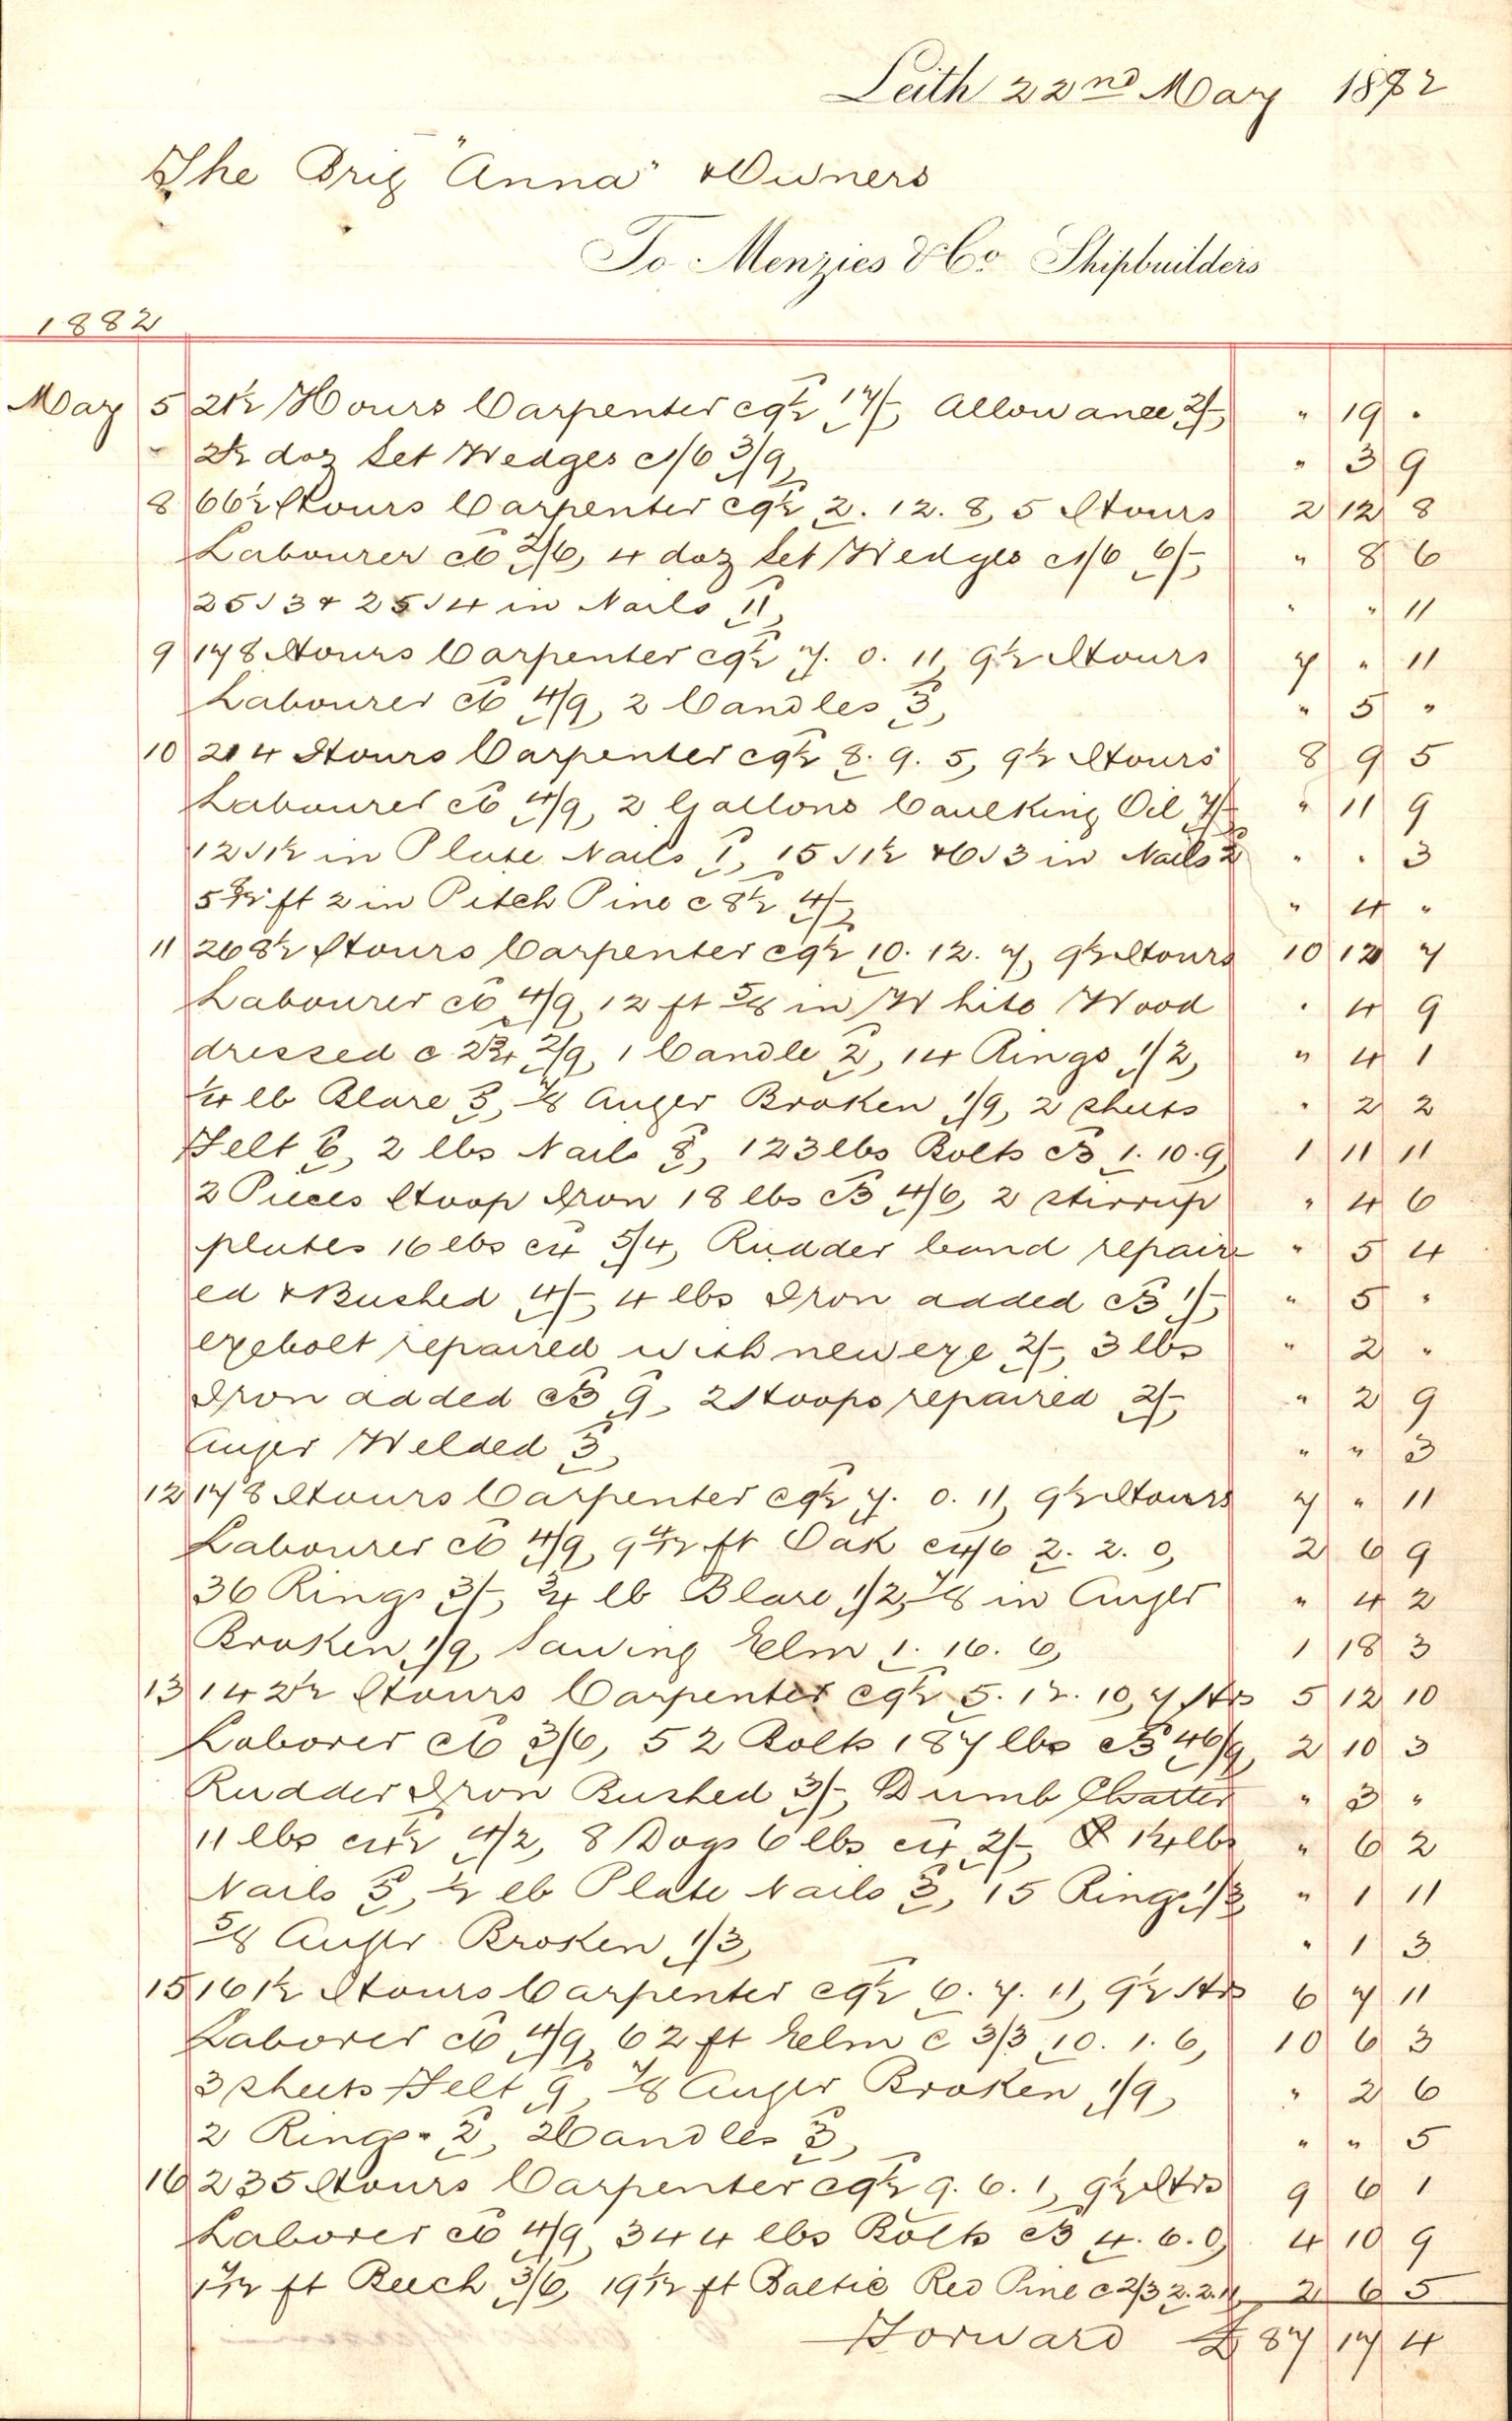 Leith 22nd May 1882
The Brig "Anna" & Owners
To Menzies & Co Shipbuilders
1882
May 5 21½ Hours Carpenter @ 9½ 17/-, Allowance 2/-, " 19 "
" 2½ doz Set Wedges @ 1/6 3/9, " 3 9
8 66½ Hours Carpenter @ 9½ 2. 12. 8, 5 Hours 2 12 8
Labourer @ 6 2/6, 4 doz Set Wedges @ 1/6 6/-, " 8 6
25 / 3 & 25 / 4 in Nails 11, " " 11
9 178 Hours Carpenter @ 9½ 7. 0. 11, 9½ Hours 7 " 11
Labourer @ 6 4/9, 2 Candles 3, " 5 "
10 214 Hours Carpenter @ 9½ 8. 9. 5, 9½ Hours 8 9 5
Labourer @ 6 4/9, 2 Gallons Caulking Oil 7/- " 11 9
12 / 1½ in Plate Nails 1, 15 / 1½ & 6 / 3 in Nails 2 " " 3
5 8/12 ft 2 in Pitch Pine @ 8½ 4/-, " 4 "
11 268½ Hours Carpenter @ 9½ 10. 12. 7, 9½ Hours 10 12 7
Labourer @ 6 4/9, 12 ft 5/8 in White Wood " 4 9
dressed @ 2¾ 2/9, 1 Candle 2, 14 Rings 1/2, " 4 1
¼ lb Blare 5, 7/8 Auger Broken 1/9, 2 sheets " 2 2
Felt 6, 2 lbs Nails 8, 123 lbs Bolts @ 3 1. 10. 9, 1 11 11
2 Pieces Hoop Iron 18 lbs @ 3 4/6, 2 stirrup " 4 6
plates 16 lbs @ 4 5/4, Rudder band repair " 5 4
ed & Bushed 4/-, 4 lbs Iron added @ 3 1/-, " 5 "
eyebolt repaired with new eye 2/-, 3 lbs " 2 "
Iron added @ 3 9, 2 Hoops repaired 2/-, " 2 9
Auger Welded 3, " " 3
12 178 Hours Carpenter @ 9½ 7. 0. 11, 9½ Hours 7 " 11
Labourer @ 6 4/9, 9 4/12 ft Oak @ 4/6 2. 2. 0, 2 6 9
36 Rings 3/-, ¾ lb Blare 1/2, 7/8 in Auger " 4 2
Broken 1/9, Sawing Elm 1. 16. 6, 1 18 3
13 142½ Hours Carpenter @ 9½ 5. 12. 10, 7 Hrs 5 12 10
Laborer @ 6 3/6, 52 Bolts 187 lbs @ 3 46/9, 2 10 3
Rudder Iron Bushed 3/-, Dumb Chatter " 3 "
11 lbs @ 4½ 4/2, 8 Dogs 6 lbs @ 4 2/-, 1¼ lbs " 6 2
Nails 5, ½ lb Plate Nails 3, 15 Rings 1/3, " 1 11
5/8 Auger Broken 1/3, " 1 3
15 161½ Hours Carpenter @ 9½ 6. 7. 11, 9½ Hrs 6 7 11
Laborer @ 6 4/9, 62 ft Elm @ 3/3 10. 1. 6, 10 6 3
3 sheets Felt 9, 7/8 Auger Broken 1/9, " 2 6
2 Rings 2, 2 Candles 3, " " 5
16 235 Hours Carpenter @ 9½ 9. 6. 1, 9½ Hrs 9 6 1
Laborer @ 6 4/9, 344 lbs Bolts @ 3 4. 6. 0, 4 10 9
1 7/12 ft Beech 3/6, 19 1/12 ft Baltic Red Pine @ 2/3 2. 2. 11, 2 6 5
Forward £ 87 17 4